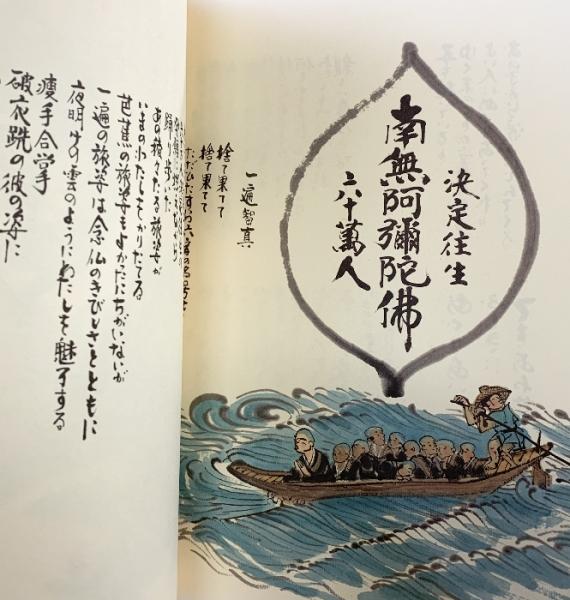 決定往生
南無阿彌陀佛
六十萬人
一遍智真
捨て果てて
捨て果てて
ただひたすら六字の名号を
踊り歩いた
あの稜々たる旅姿が
いまのわたしをかりたてる
芭蕉の旅姿もよかったにちがいないが
一遍の旅姿は念仏のきびしさとともに
夜明けの雲のようにわたしを魅了する
痩手合掌
破衣跣の彼の姿に